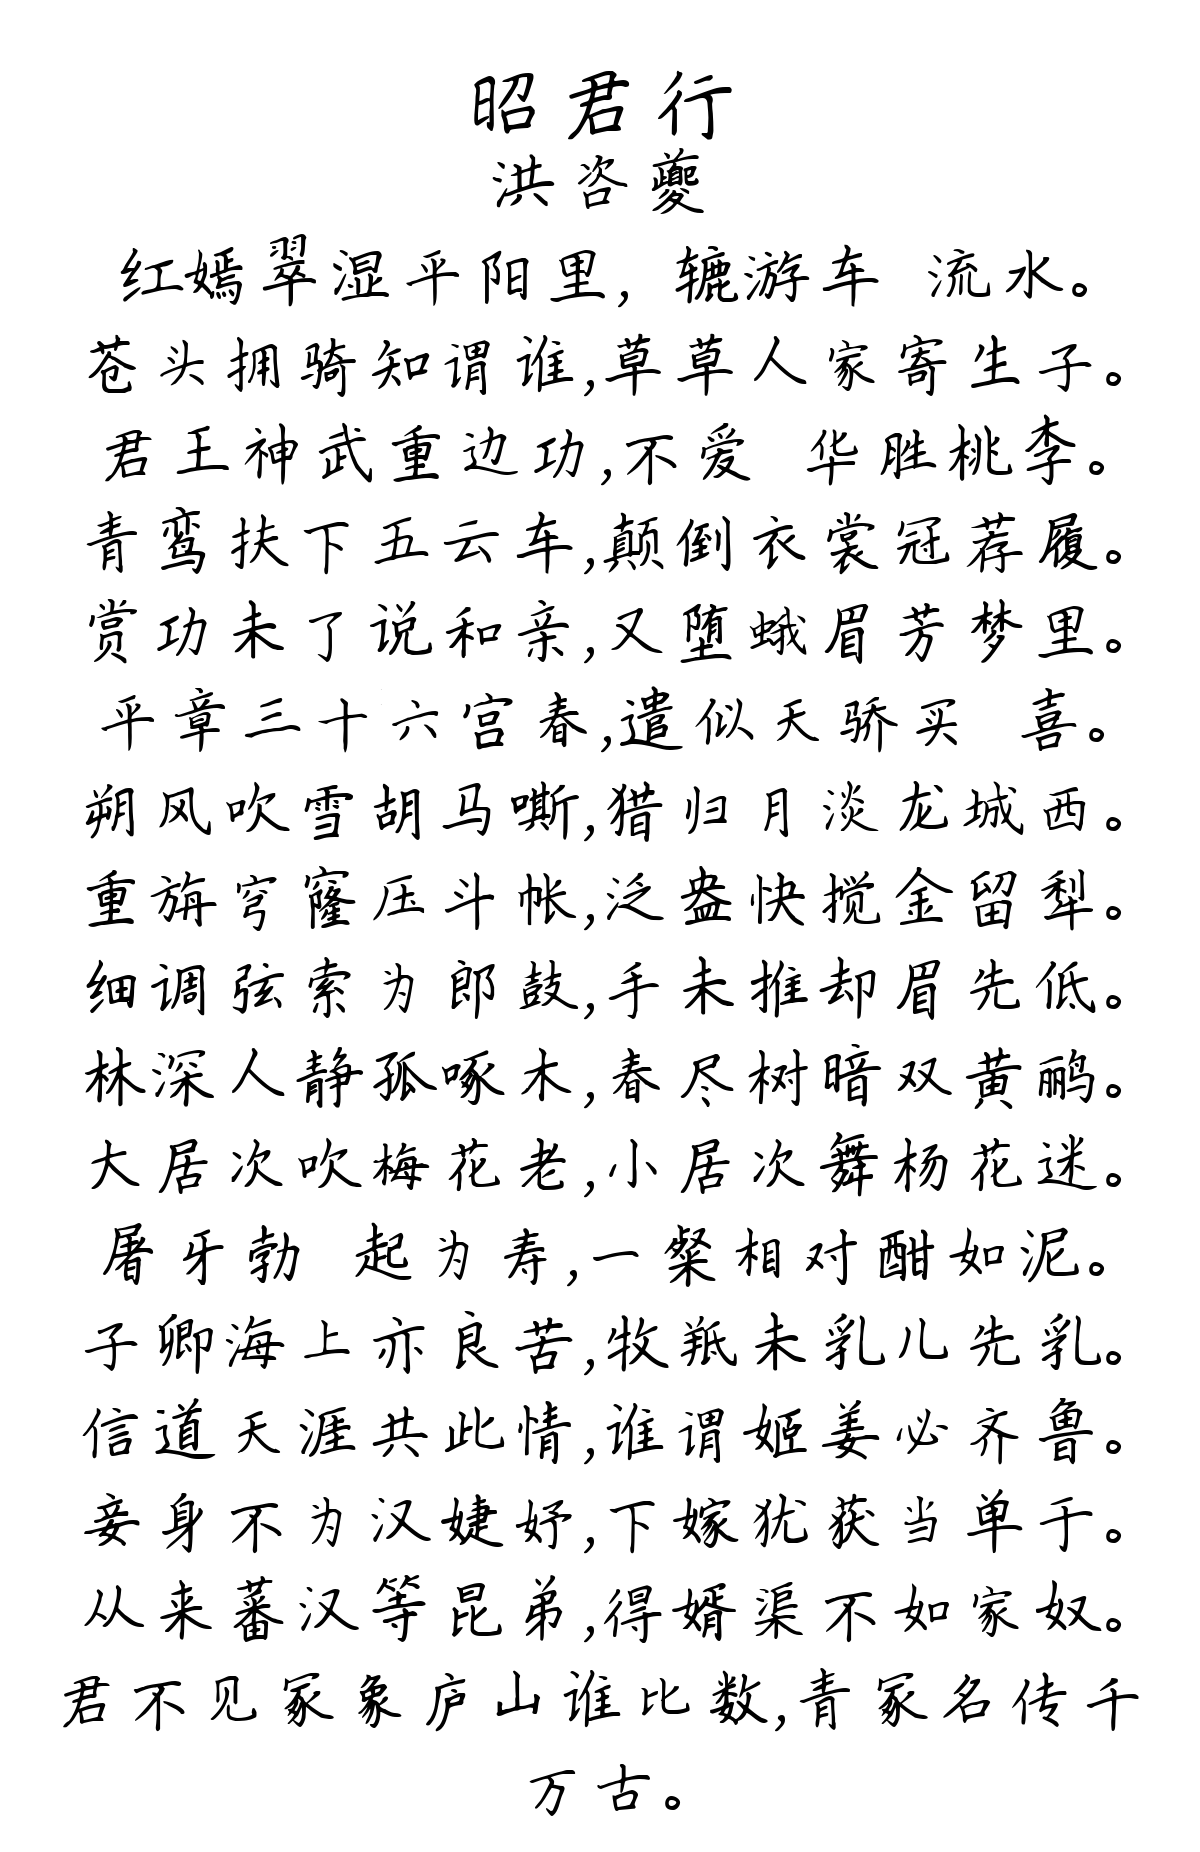 昭君行
洪咨夔
红嫣翠湿平阳里，辘游车 流水。
苍头拥骑知谓谁,草草人家寄生子。
君王神武重边功,不爱 华胜桃李。
青鸾扶下五云车,颠倒衣裳冠荐履。
赏功未了说和亲,又堕蛾眉芳梦里。
平章三十六宫春,遣似天骄买 喜。
朔风吹雪胡马嘶,猎归月淡龙城西。
重旃穹窿压斗帐,泛盎快搅金留犁。
细调弦索为郎鼓,手未推却眉先低。
林深人静孤啄木,春尽树暗双黄鹂。
大居次吹梅花老,小居次舞杨花迷。
屠牙勃 起为寿,一粲相对酣如泥。
子卿海上亦良苦,牧羝未乳儿先乳。
信道天涯共此情,谁谓姬姜必齐鲁。
妾身不为汉婕妤,下嫁犹获当单于。
从来蕃汉等昆弟,得婿渠不如家奴。
君不见冢象庐山谁比数,青冢名传千
万古。